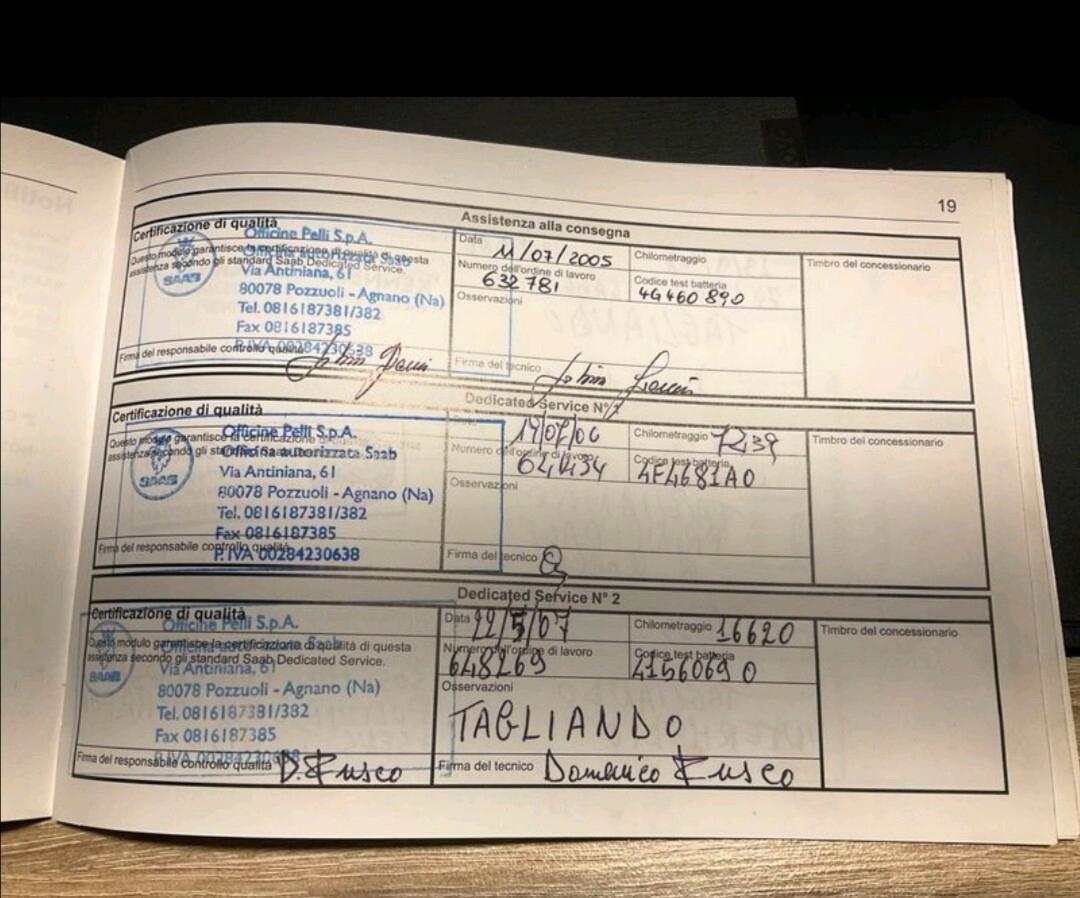 19
Assistenza alla consegna
Certificazione di qualità
Questo modulo garantisce la certificazione di qualità di questa
assistenza secondo gli standard Saab Dedicated Service.
Officine Pelli S.p.A.
Officina autorizzata Saab
Via Antiniana, 61
80078 Pozzuoli - Agnano (Na)
Tel. 0816187381/382
Fax 0816187385
P. IVA 00284230638
SAAB
Firma del responsabile controllo qualità
Data 11/07/2005
Numero dell'ordine di lavoro
632781
Osservazioni
Firma del tecnico
Chilometraggio
Codice test batteria
4G460890
Timbro del concessionario
Dedicated Service N° 1
Certificazione di qualità
Questo modulo garantisce la certificazione di
assistenza secondo gli standard
Officine Pelli S.p.A.
Officina autorizzata Saab
Via Antiniana, 61
80078 Pozzuoli - Agnano (Na)
Tel. 0816187381/382
Fax 0816187385
P. IVA 00284230638
SAAB
Firma del responsabile controllo qualità
Numero dell'ordine di lavoro
Osservazioni
Firma del tecnico
Chilometraggio 7239
Codice test batteria
4F4681A0
Timbro del concessionario
Dedicated Service N° 2
Certificazione di qualità
Questo modulo garantisce la certificazione di qualità di questa
assistenza secondo gli standard Saab Dedicated Service.
Officine Pelli S.p.A.
Officina autorizzata Saab
Via Antiniana, 61
80078 Pozzuoli - Agnano (Na)
Tel. 0816187381/382
Fax 0816187385
P. IVA 00284230638
SAAB
Firma del responsabile controllo qualità D. Fusco
Data 22/5/07
Numero dell'ordine di lavoro
648269
Osservazioni
TAGLIANDO
Firma del tecnico Domenico Fusco
Chilometraggio 16620
Codice test batteria
4156069 0
Timbro del concessionario